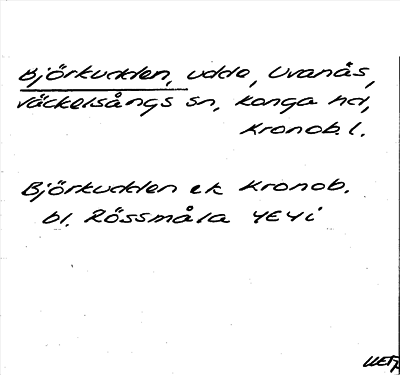 Björkudden, udde, Uvanås,
Väckelsångs sn, Konga hd,
Kronob. l.
Björkudden ek Kronob.
bl. Rössmåla 4E4i